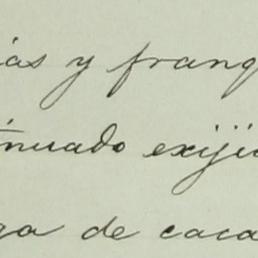 ias y franq
tinuado exijii
ga de caca